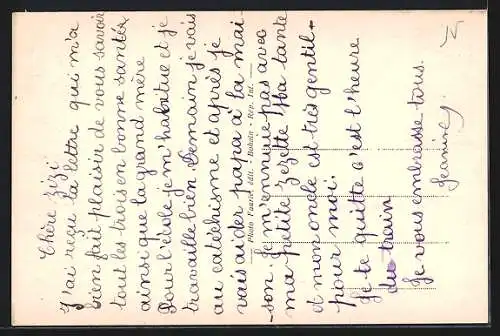 Chère Zizi
J'ai reçu ta lettre qui m'a
bien fait plaisir de vous savoir
tout les trois en bonne santée,
ainsi que la grand mère
Pour l'école je m'habitue et je
travaille bien. Demain je vais
au catéchisme et après je
vais aider papa à la mai-
son. Je m'ennuie pas avec
ma petite Zezette. Ma tante
et mon oncle est très gentil
pour moi.
Je te quitte c'est l'heure
du train
Je vous embrasse tous.
Jeanine
Photo édit. - Rep. Int.